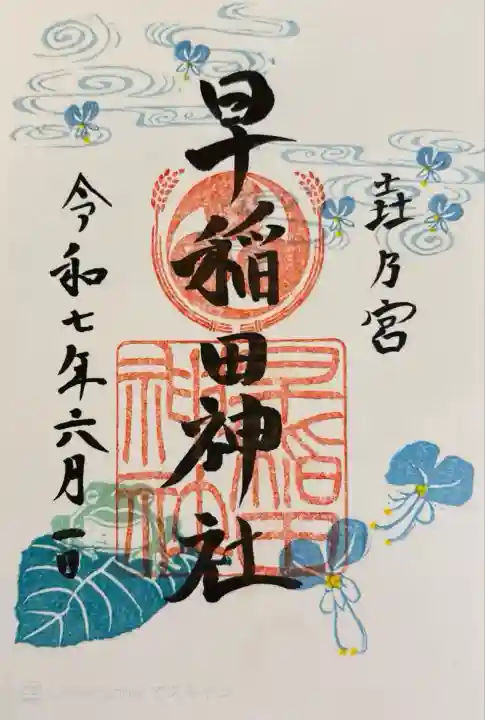 㐂乃宮
早稲田神社
令和七年六月一日
早稲田
神社